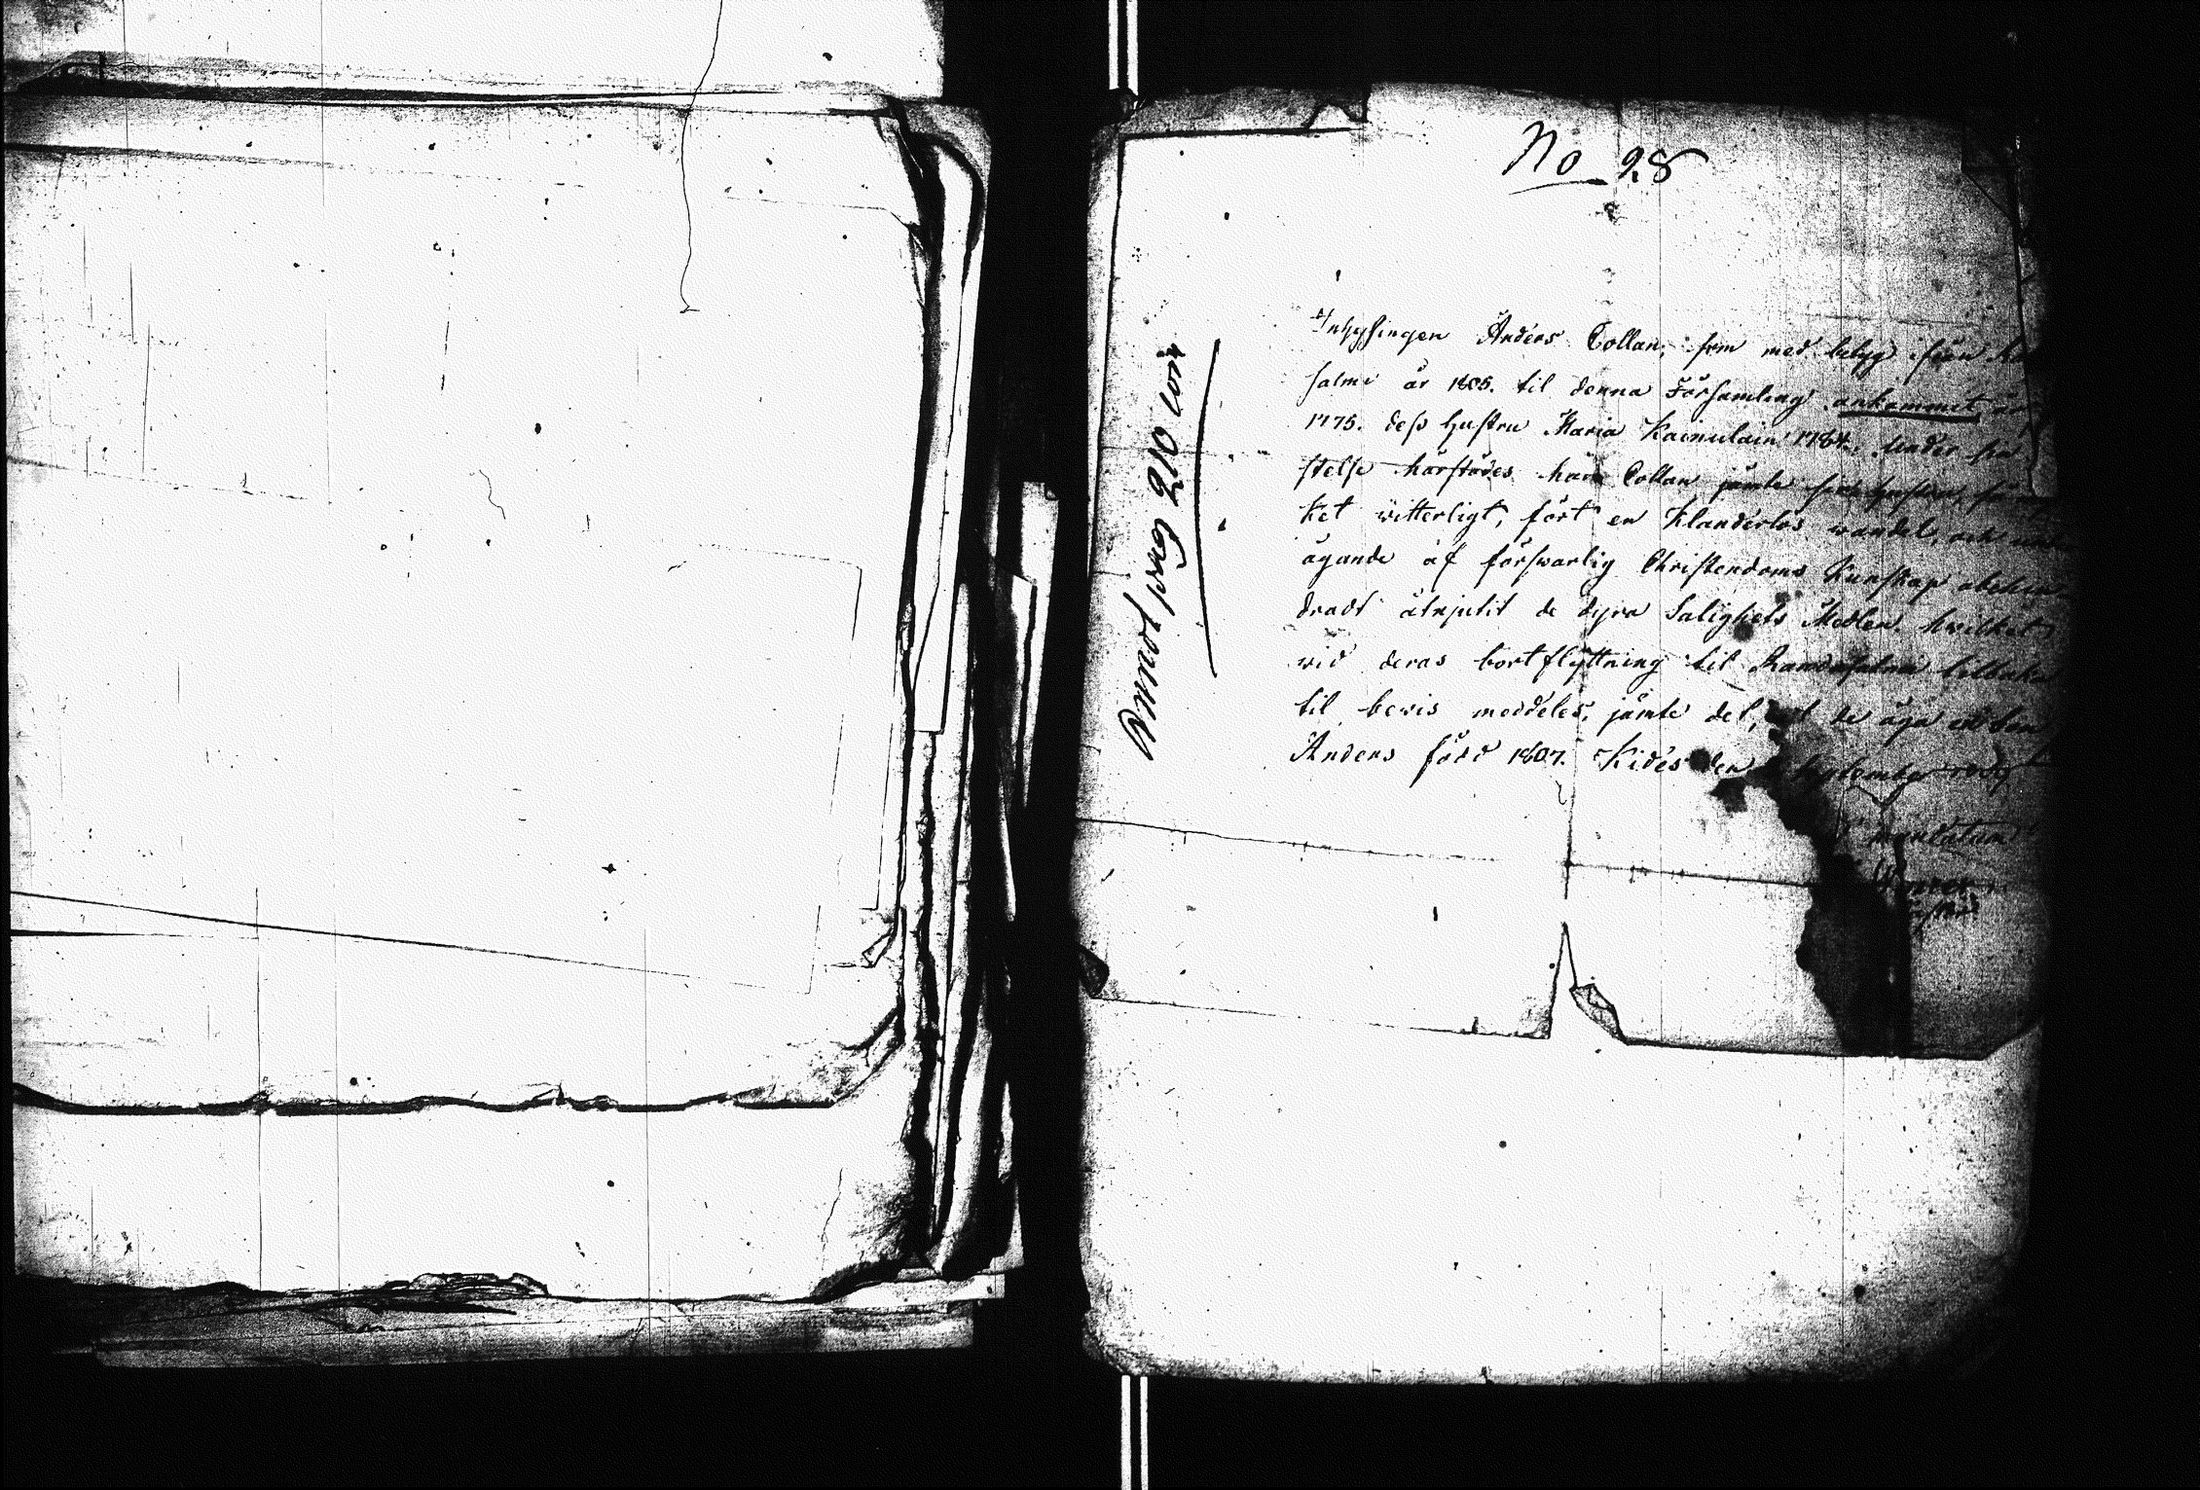 No 28
Inhysingen Anders Collan, som med betyg ifrån
salmi år 1805. til denna Församling ankommit
1775. dess hustru Maria Kainulain 1784. Under
stelse härstädes har Collan jämte sin hustru,
ket witterligt, fört en Klanderlös wandel, och
ägande af förswarlig Christendoms Kunskap obehin
dradt åtnjutit de dyra Salighets Medlen. hwilket
wid deras bortflyttning til Randasalmi tilbaka
til bewis meddeles, jämte det, at de äga
Anders född 1807. Kides den September
mandatum
pag 210